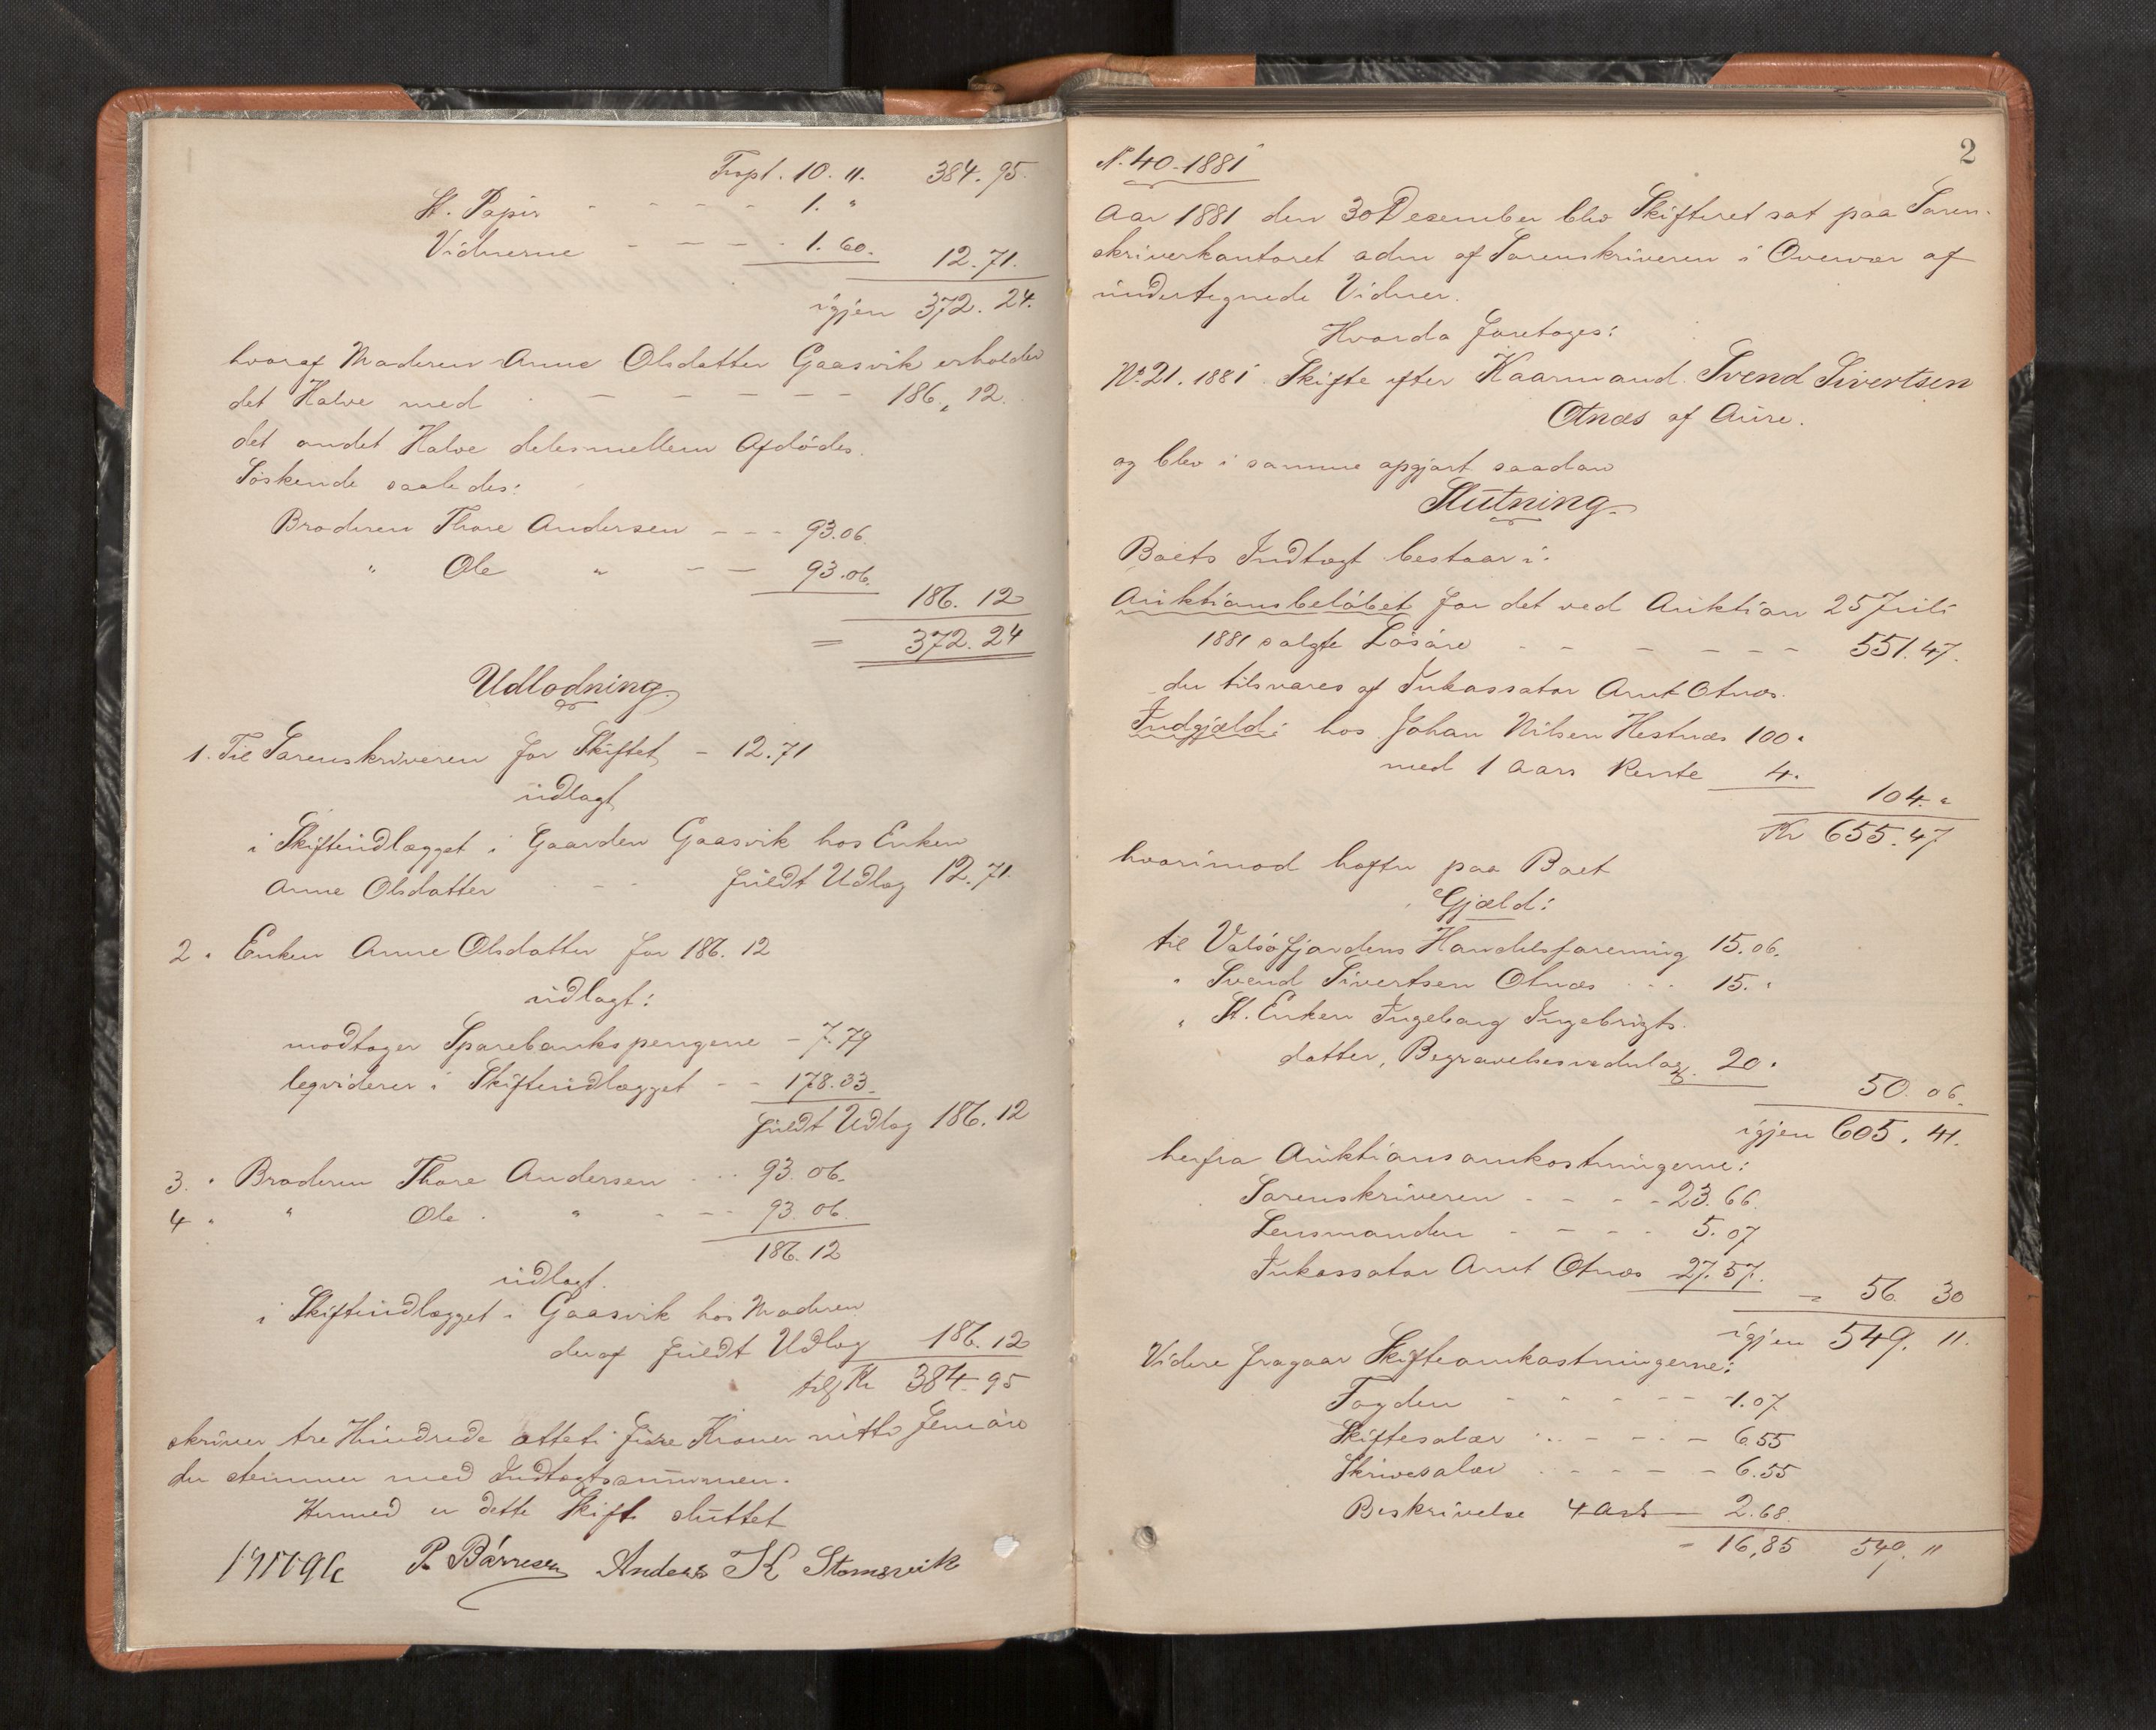 Trspt. 10. 11. 384. 95.
St. Papir - - - - - 1. "
Vidnerne - - - - - 1. 60. 12. 71.
igjen 372. 24.
hvoraf Moderen Anne Olsdatter Gaasvik erholder
det Halve med - - - - - - 186. 12.
det andet Halve deles mellem Afdödes
Söskende saaledes:
Broderen Thore Andersen - - - 93.06.
" Ole " - - 93.06.
186. 12
= 372. 24
Udlodning
1. Til Sorenskriveren for Skiftet - 12.71
udlagt
i Skifteudlægget i Gaarden Gaasvik hos Enken
Anne Olsdatter - - fuldt Udlæg 12.71.
2 " Enken Anne Olsdatter for 186. 12
udlagt:
modtager Sparebankspengene - 7.79
leqviderer i Skifteudlægget - - 178.33
fuldt Udlæg 186. 12
3. " Broderen Thore Andersen - - - 93. 06.
4 " " Ole " - - - 93. 06.
186. 12
udlagt.
i Skifteudlægget i Gaasvik hos Moderen
deraf fuldt Udlæg 186. 12
tils Kr 384. 95
skriver tre Hundrede ötteti fire Kroner nitti fem öre
der stemmer med Indtægtssummen.
Hermed er dette Skift sluttet
P. Börresen Anders K Stomsvik
2
N. 40-1881
Aar 1881 den 30 Desember blev Skifteret sat paa Soren-
skriverkontoret adm af Sorenskriveren i Overvær af
undertegnede Vidner.
Hvorda foretoges:
No 21. 1881 Skifte efter Kaarmand Svend Sivertsen
Otnæs af Aure.
og blev i samme opgjort saadan
Slutning
Boets Indtægt bestaar i:
Auktionsbelöbet for det ved Auktion 25 Juli
1881 solgte Lösöre - - - - - - 551.47.
der tilsvares af Inkassator Arnt Otnæs.
Indgjæld: hos Johan Nilsen Hestnæs 100 "
med 1 Aars Rente 4.
104. "
Kr 655. 47
hvorimod hefter paa Boet
Gjæld:
til Valsöfjordens Handelsforening 15.06.
" Svend Sivertsen Otnæs - - - 15. "
" St. Enken Ingeborg Ingebrigts-
datter, Begravelsesvederlag 20 "
50. 06.
igjen 605. 41.
herfra Auktionsomkostningerne:
Sorenskriveren - - - - 23. 66.
Lensmanden - - - - 5. 07
Inkassator Arnt Otnæs 27. 57.
= 56. 30
igjen 549. 11.
Videre fragaar Skifteomkostningerne:
Fogden - - - - - - 1.07
Skiftesalær - - - - - 6.55
Skrivesalær - - - - - 6.55
Beskrivelse 4 Ark - 2.68.
- 16,85 549. 11